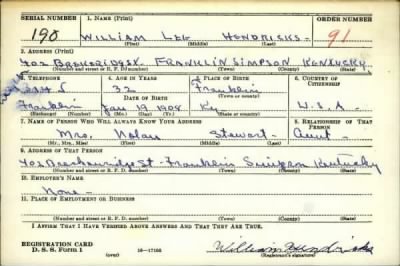 SERIAL NUMBER 1. NAME (Print) ORDER NUMBER
190 WILLIAM LEE HENDRICKS. 91
(First) (Middle) (Last)
2. ADDRESS (Print)
402 FRANKLIN SIMPSON KENTUCKY.
(Number and street or R. F. D. number) (Town) (County) (State)
3. TELEPHONE 4. AGE IN YEARS 5. PLACE OF BIRTH 6. COUNTRY OF CITIZENSHIP
32 Franklin
DATE OF BIRTH (Town or county)
Franklin Jan 19 1908 Ky. U.S.A.
(Exchange) (Number) (Mo.) (Day) (Yr.) (State or country)
7. NAME OF PERSON WHO WILL ALWAYS KNOW YOUR ADDRESS 8. RELATIONSHIP OF THAT PERSON
Mrs. Nolan Stewart- Aunt-
(Mr., Mrs., Miss) (First) (Middle) (Last)
9. ADDRESS OF THAT PERSON
402 Breckenridge St- Franklin Simpson Kentucky
(Number and street or R. F. D. number) (Town) (County) (State)
10. EMPLOYER'S NAME
None-
11. PLACE OF EMPLOYMENT OR BUSINESS
(Number and street or R. F. D. number) (Town) (County) (State)
I AFFIRM THAT I HAVE VERIFIED ABOVE ANSWERS AND THAT THEY ARE TRUE.
REGISTRATION CARD
D. S. S. Form 1 16—17105 William Hendricks
(Registrant's signature)